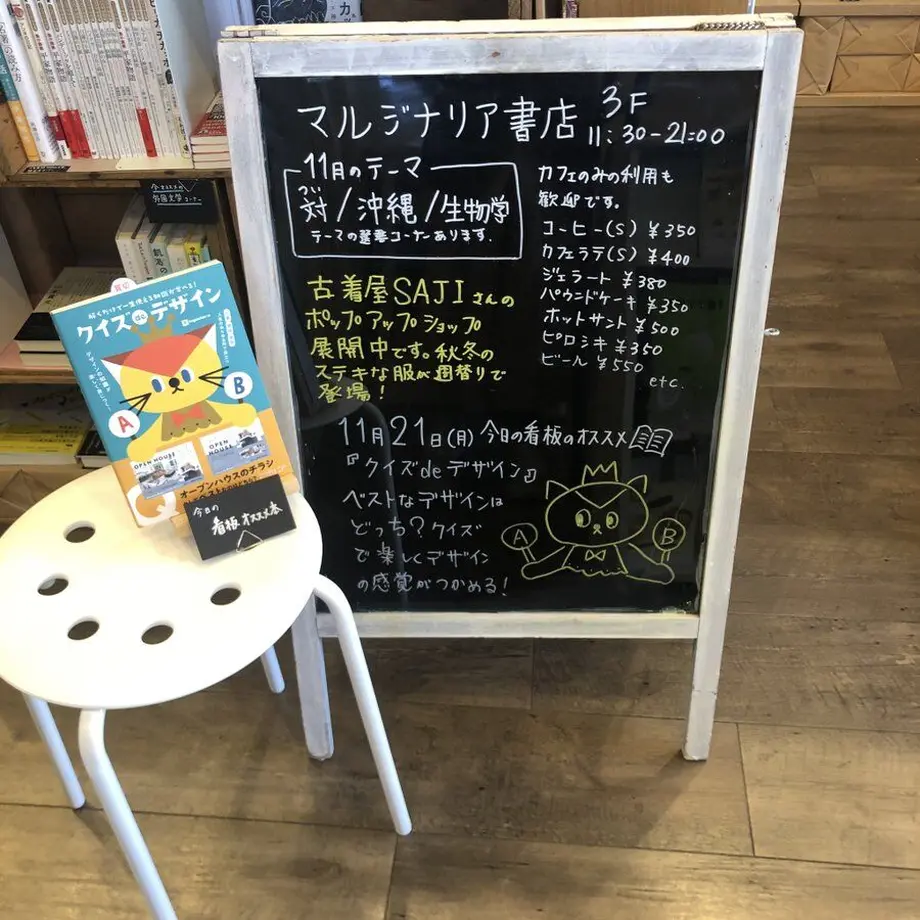 マルジナリア書店 3F
11:30-21:00
11月のテーマ
つい
対/沖縄/生物学
テーマの選書コーナーあります.
カフェのみの利用も
歓迎です。
コーヒー(S) ¥350
カフェラテ(S) ¥400
ジェラート ¥380
パウンドケーキ ¥350
ホットサンド ¥500
ピロシキ ¥350
ビール ¥550
etc.
古着屋SAJIさんの
ポップアップショップ
展開中です。秋冬の
ステキな服が週替りで
登場!
11月21日(月) 今日の看板のオススメ
『クイズdeデザイン』
ベストなデザインは
どっち?クイズ
で楽しくデザイン
の感覚がつかめる!
A
B
解くだけで一生使える知識が学べる!
クイズdeデザイン
A
B
OPEN HOUSE
OPEN HOUSE
オープンハウスのチラシ
今日の
看板オススメ本
外国文学コーナー